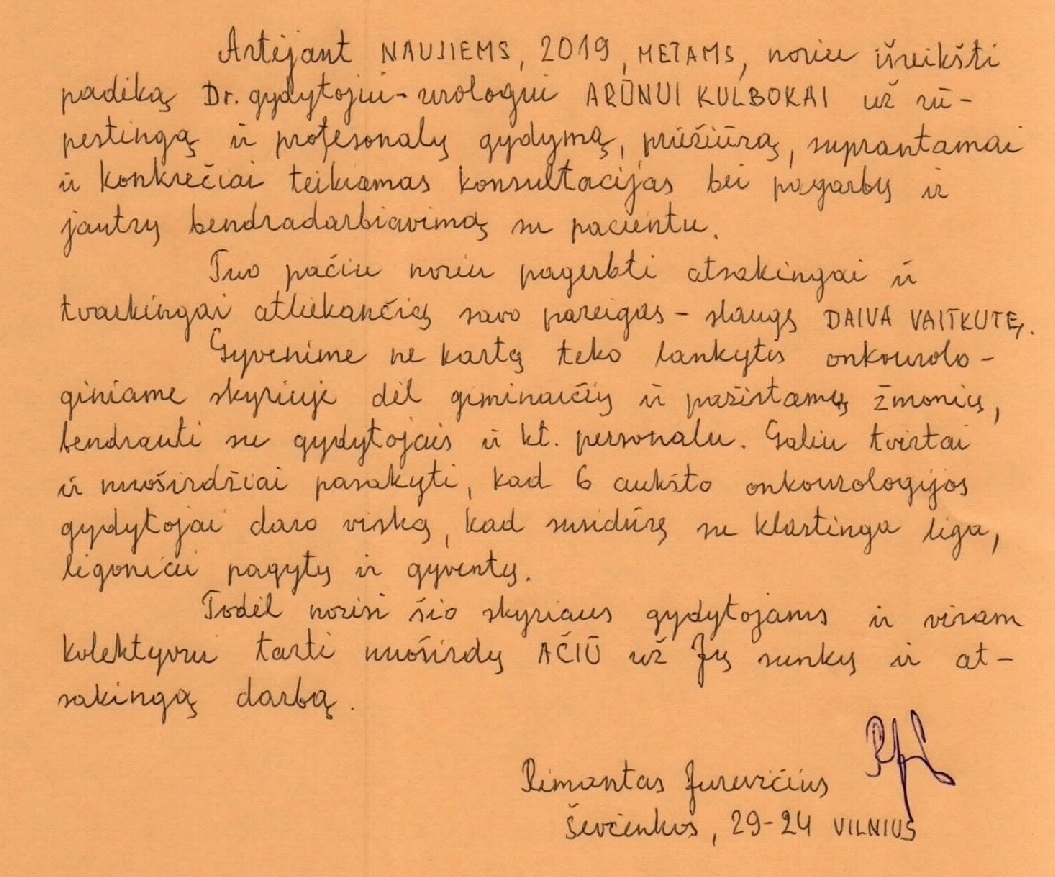 Artėjant NAUJIEMS, 2019, METAMS, noriu išreikšti
padėką Dr. gydytojui-urologui ARŪNUI KULBOKAI už rū-
pestingą ir profesonalų gydymą, priežiūrą, suprantamai
ir konkrečiai teikiamas konsultacijas bei pagarbų ir
jautrų bendradarbiavimą su pacientu.
Tuo pačiu noriu pagerbti atsakingai ir
tvarkingai atliekančią savo pareigas - slaugę DAIVA VAITKUTĘ.
Gyvenime ne kartą teko lankytis onkourolo-
giniame skyriuje dėl giminaičių ir pažįstamų žmonių,
bendrauti su gydytojais ir kt. personalu. Galiu tvirtai
ir nuoširdžiai pasakyti, kad 6 aukšto onkourologijos
gydytojai daro viską, kad susidūrę su klastinga liga,
ligoniai pagytų ir gyventų.
Todėl norisi šio skyriaus gydytojams ir visam
kolektyvui tarti nuoširdų AČIŪ už Jų sunkų ir at-
sakingą darbą.
Rimantas Jurevičius
Ševčenkos, 29-24 VILNIUS